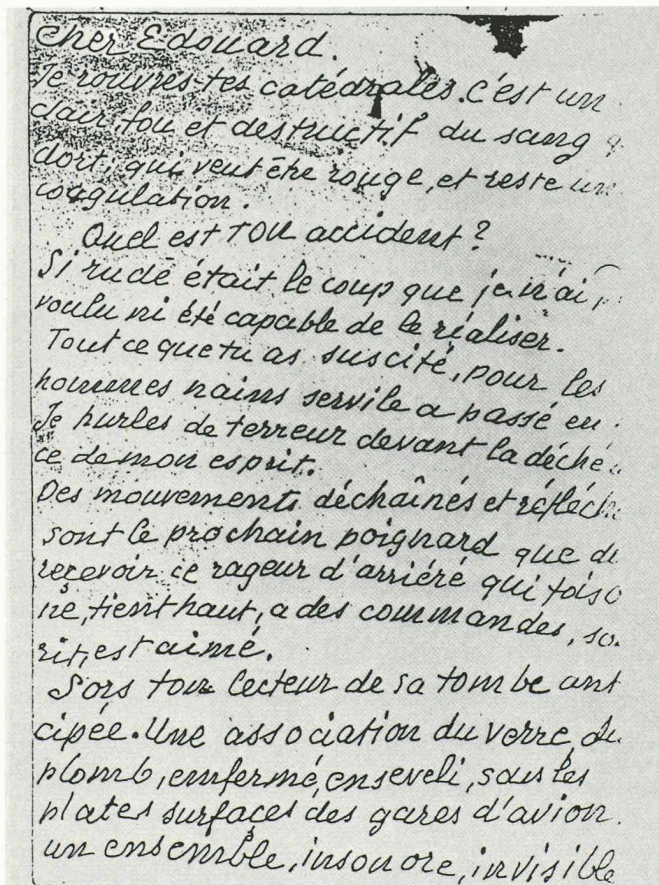 Cher Edouard.
Je rouvres-tes catédrales. c'est un
clair, fou et destructif du sang q
dort, qui veut être rouge, et reste un
coagulation.
Quel est TON accident?
Si rude était le coup que je n'ai p
voulu ni été capable de le réaliser.
Tout ce que tu as suscité, pour les
hommes nains servile a passé en
Je hurles de terreur devant la déché
ce de mon esprit.
Des mouvements déchaînés et réfléch
sont le prochain poignard que de
recevoir ce rageur d'arriéré qui foiso
ne, tient haut, a des commandes, so
rit, est aimé.
Sors ton lecteur de sa tombe ant
cipée. Une association du verre, du
plomb, enfermé, enseveli, sous les
plates surfaces des gares d'avion.
un ensemble, insonore, invisible